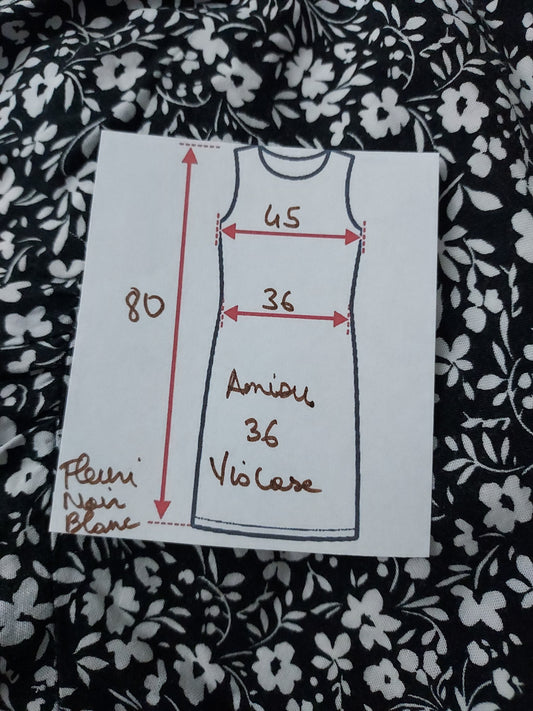 45
80
36
Amisu
36
Viscose
Fleuri
Noir
Blanc